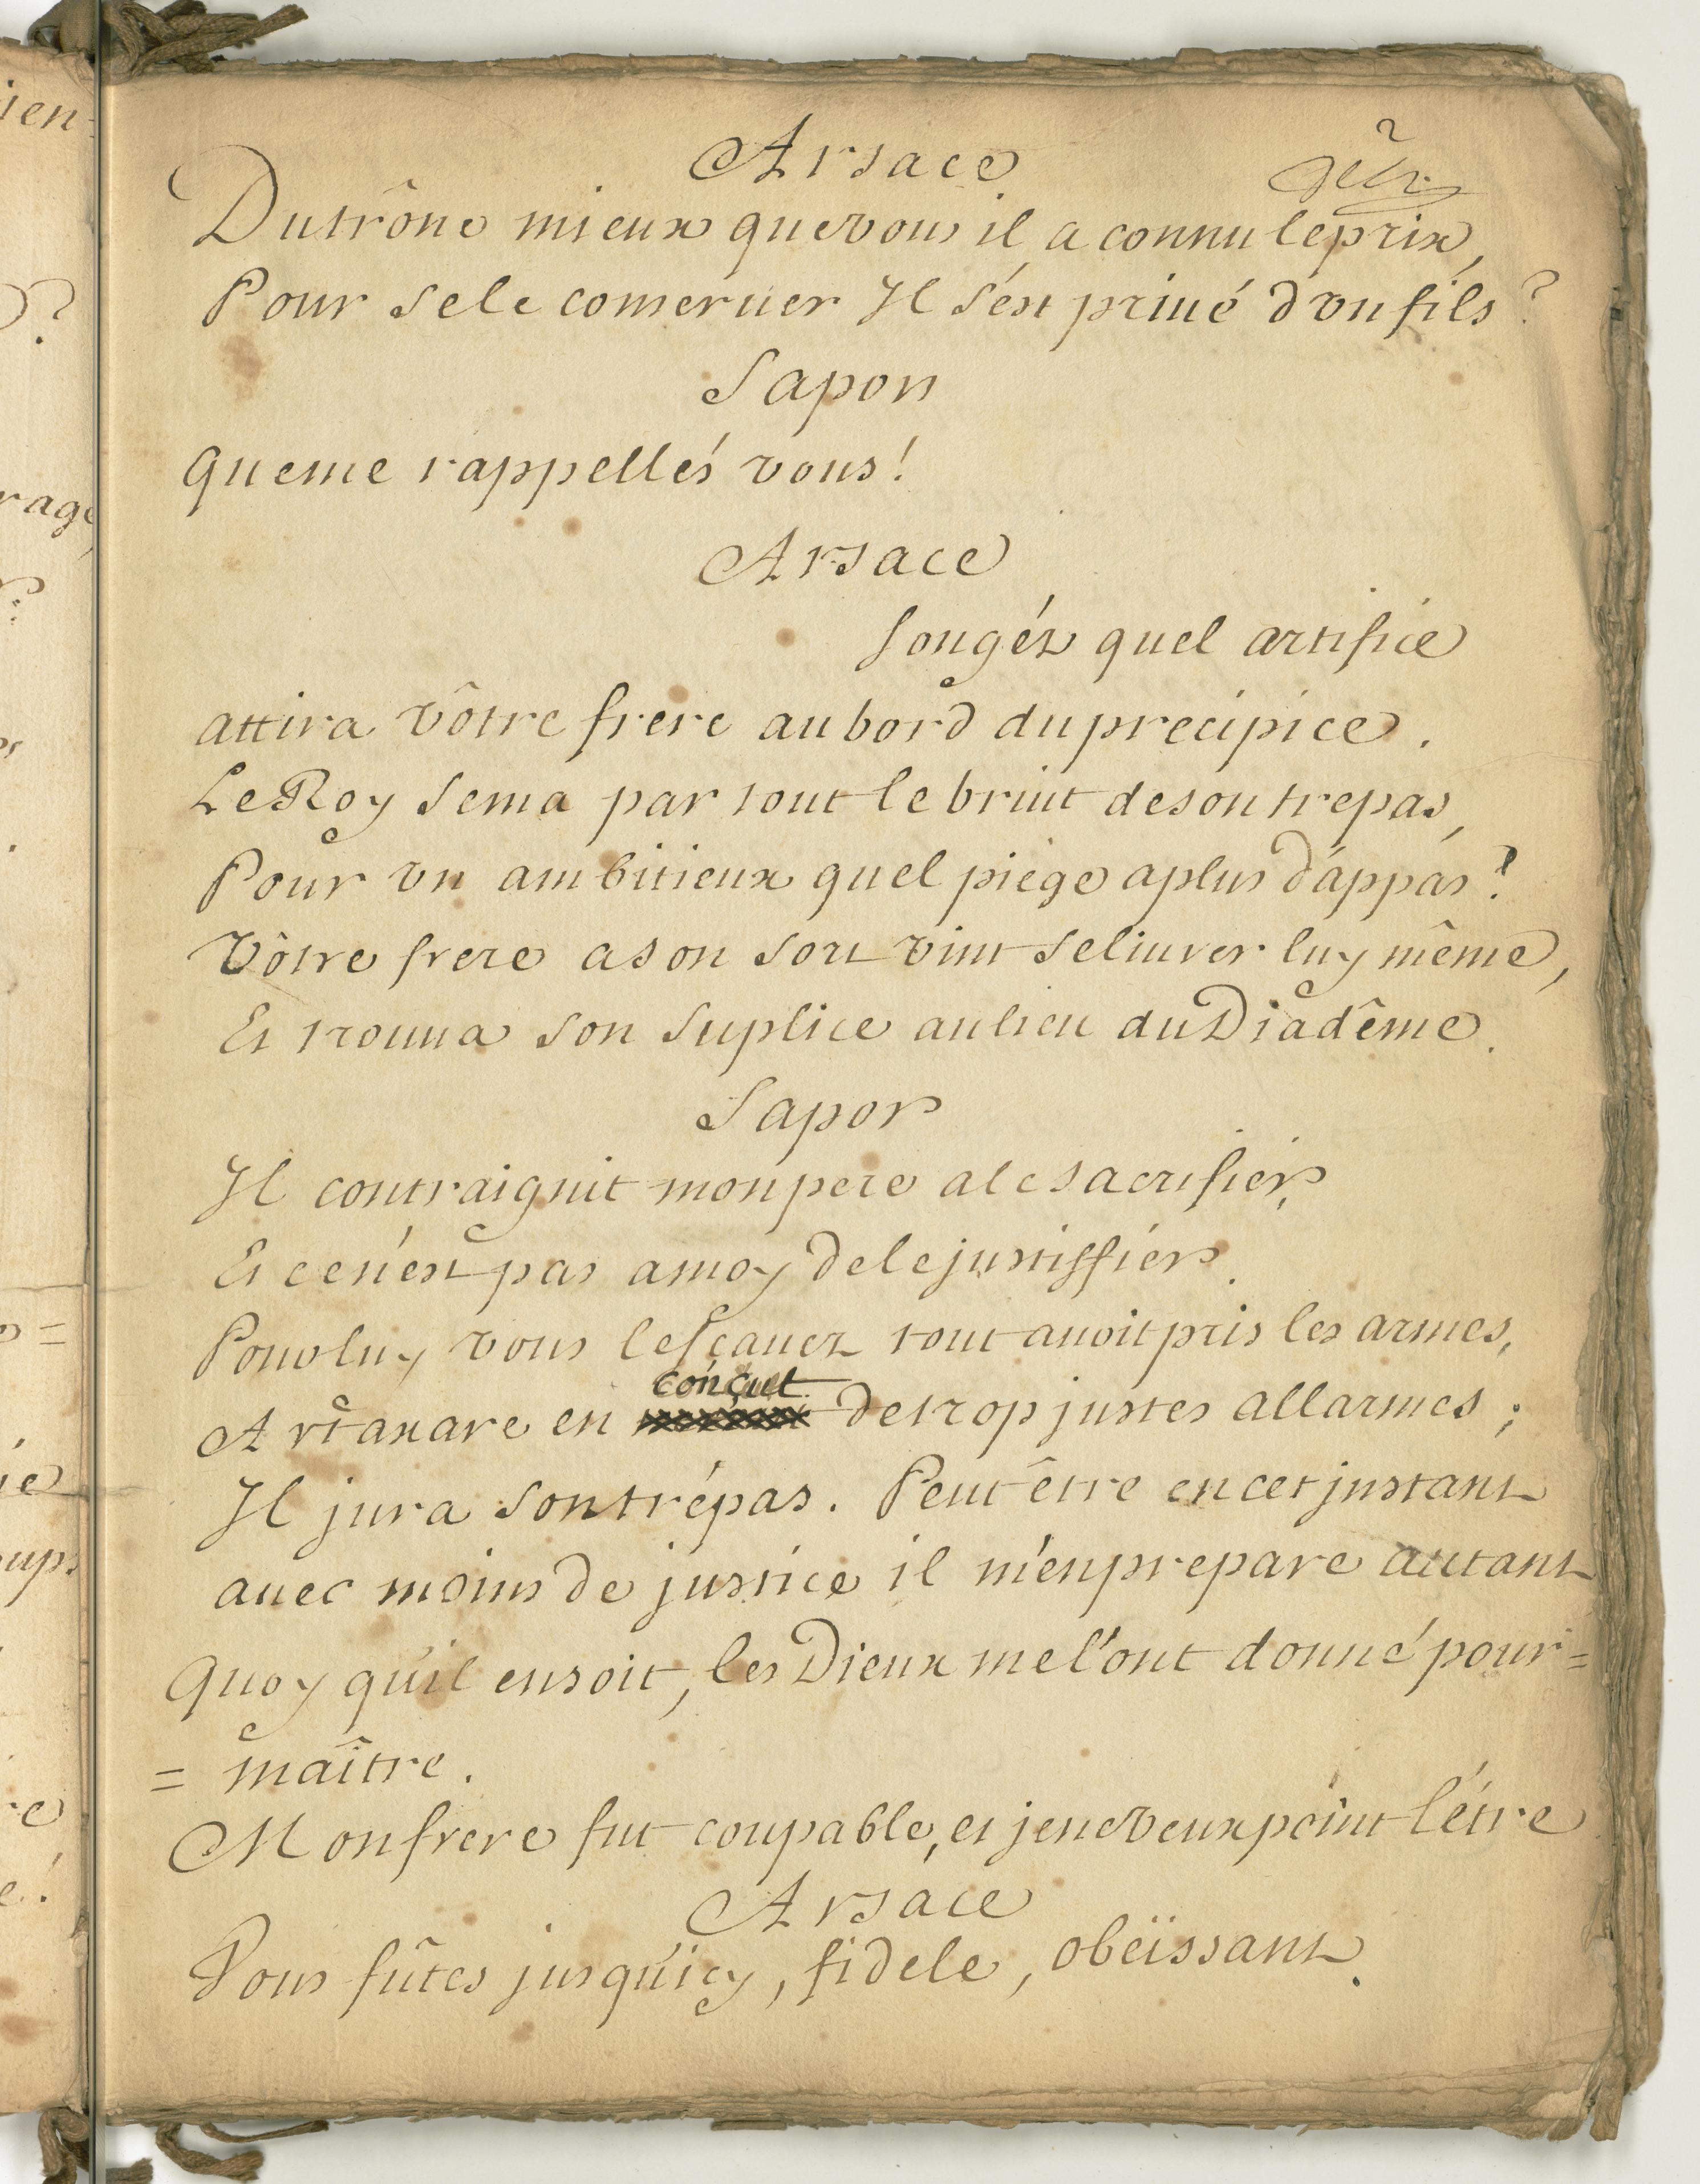 Arsace
Du trône mieux que vous il a connu le prix,
Pour se le conseruer Il s'est priué d'vn fils?
Sapor
Que me rappellés vous!
Arsace
Songéz quel artifice
attira vôtre frere au bord du precipice.
Le Roy sema par tout le bruit de son trepas,
Pour vn ambitieux quel piege a plus d'appas?
Vôtre frere a son sort vint se liurer luy même,
Et trouua son suplice au lieu du Diadême.
Sapor
Il contraignit mon pere a le sacrifier,
Et ce n'est pas a moy de le justiffier.
Pour luy vous le sçauez tout auoit pris les armes,
conçut
Artaxare en de trop justes allarmes;
Il jura son trépas. Peut être en cet jnstant
auec moins de justice il m'en prepare autant
Quoy qu'il en soit, les Dieux me l'ont donné pour=
= maître.
Mon frere fut coupable, et je ne veux point l'étre
Arsace
Vous fûtes jusqu'icy, fidele, obëissant.
ien
rage
ie
oups